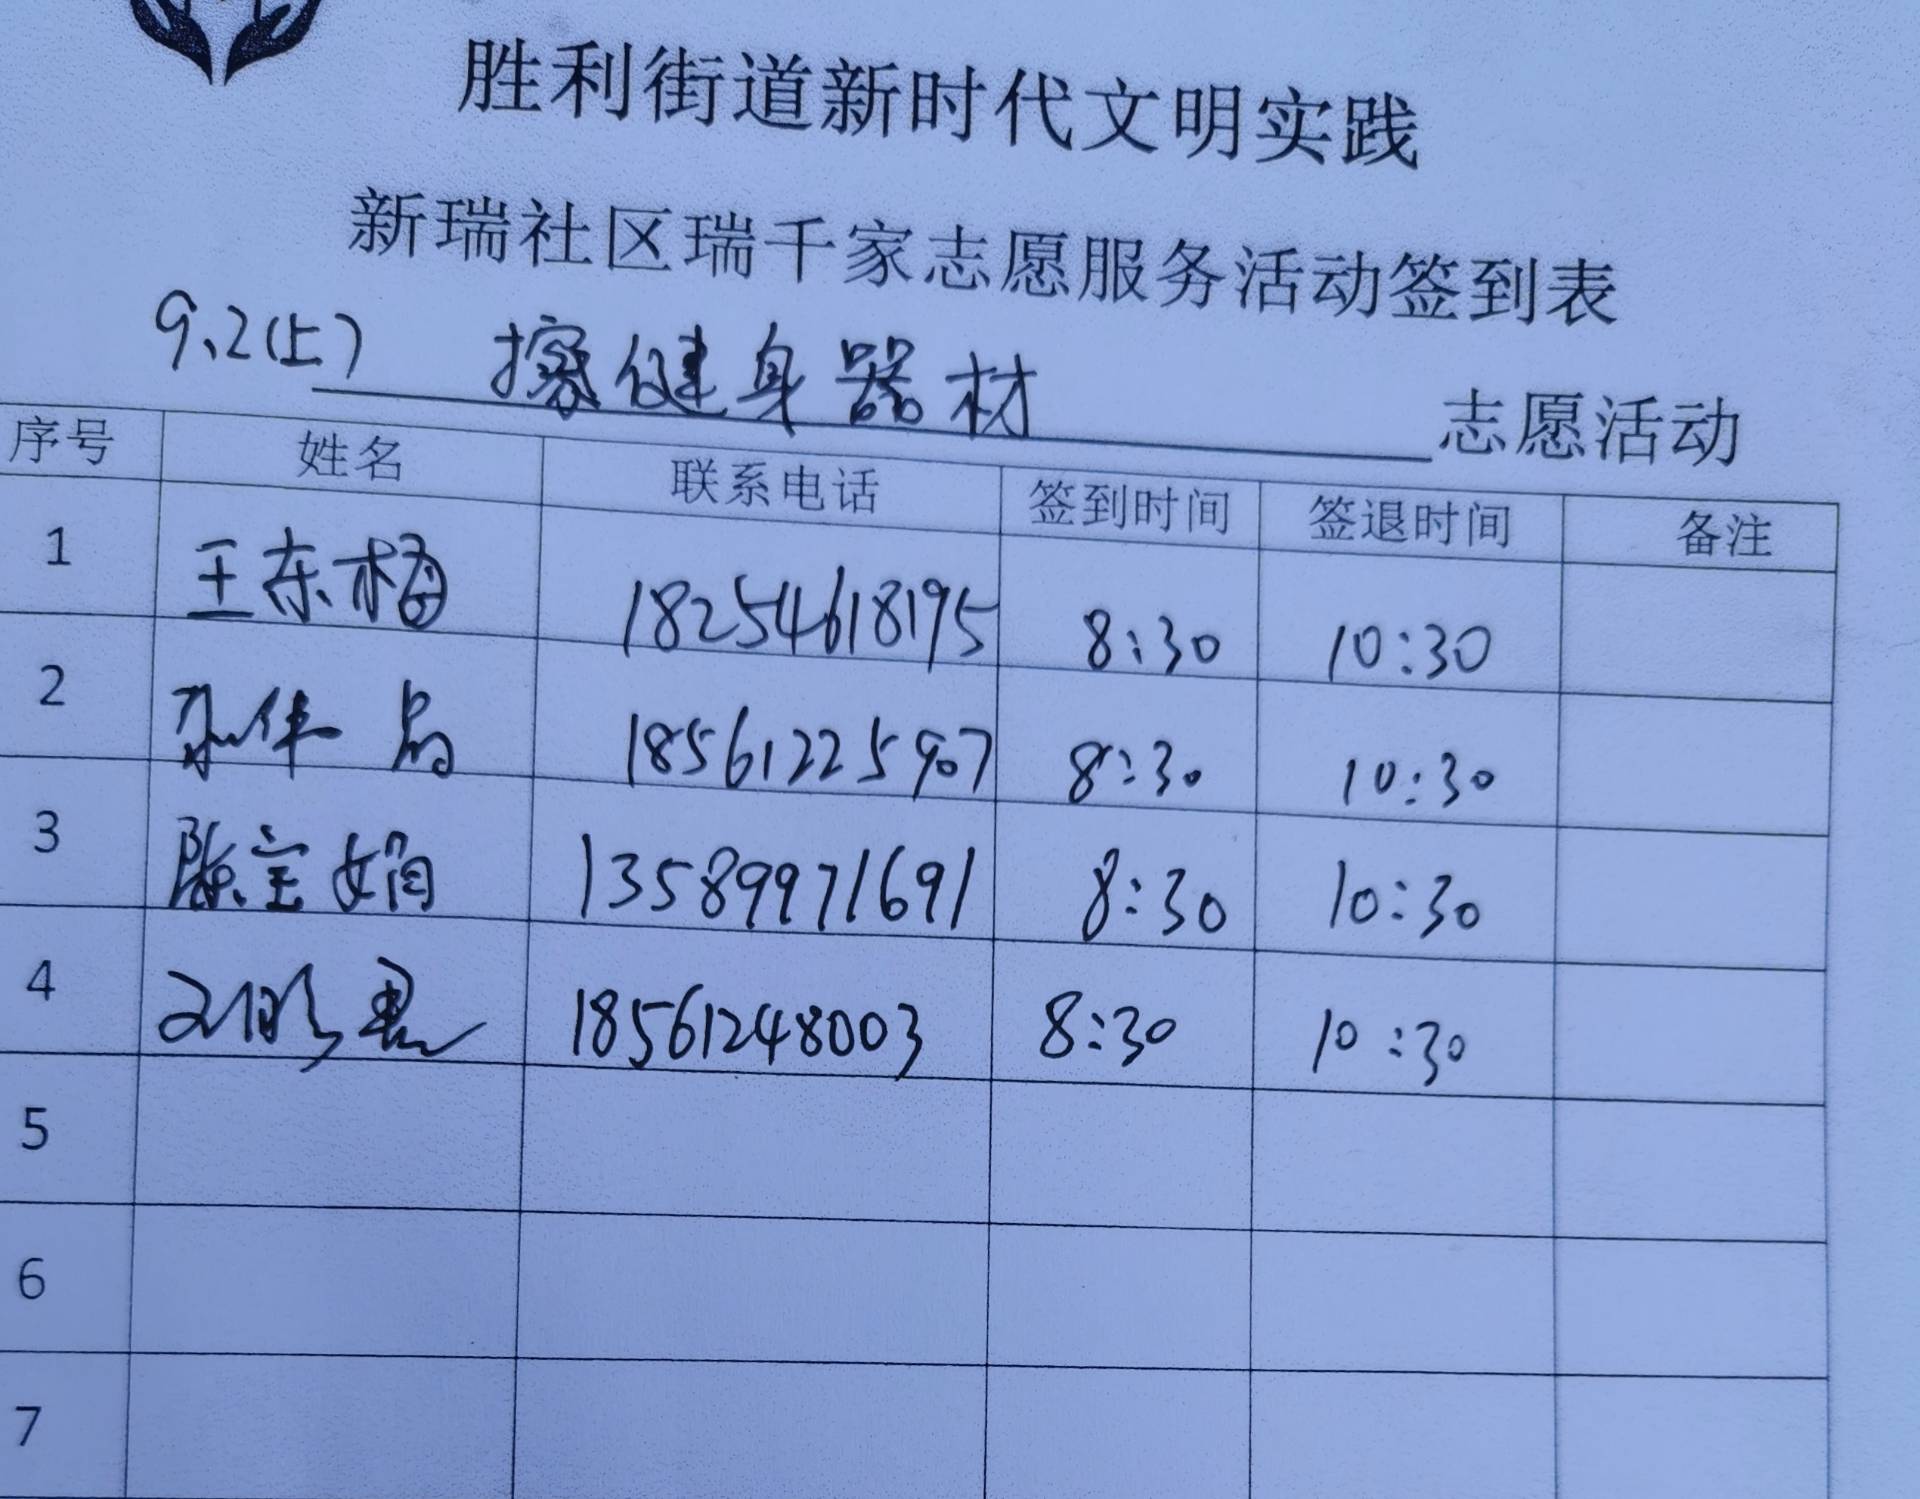 胜利街道新时代文明实践
新瑞社区瑞千家志愿服务活动签到表
9.2(上) 擦健身器材 志愿活动
序号 姓名 联系电话 签到时间 签退时间 备注
1 王东梅 18254618195 8:30 10:30
2 18561225907 8:30 10:30
3 陈宝娟 13589971691 8:30 10:30
4 18561248003 8:30 10:30
5
6
7